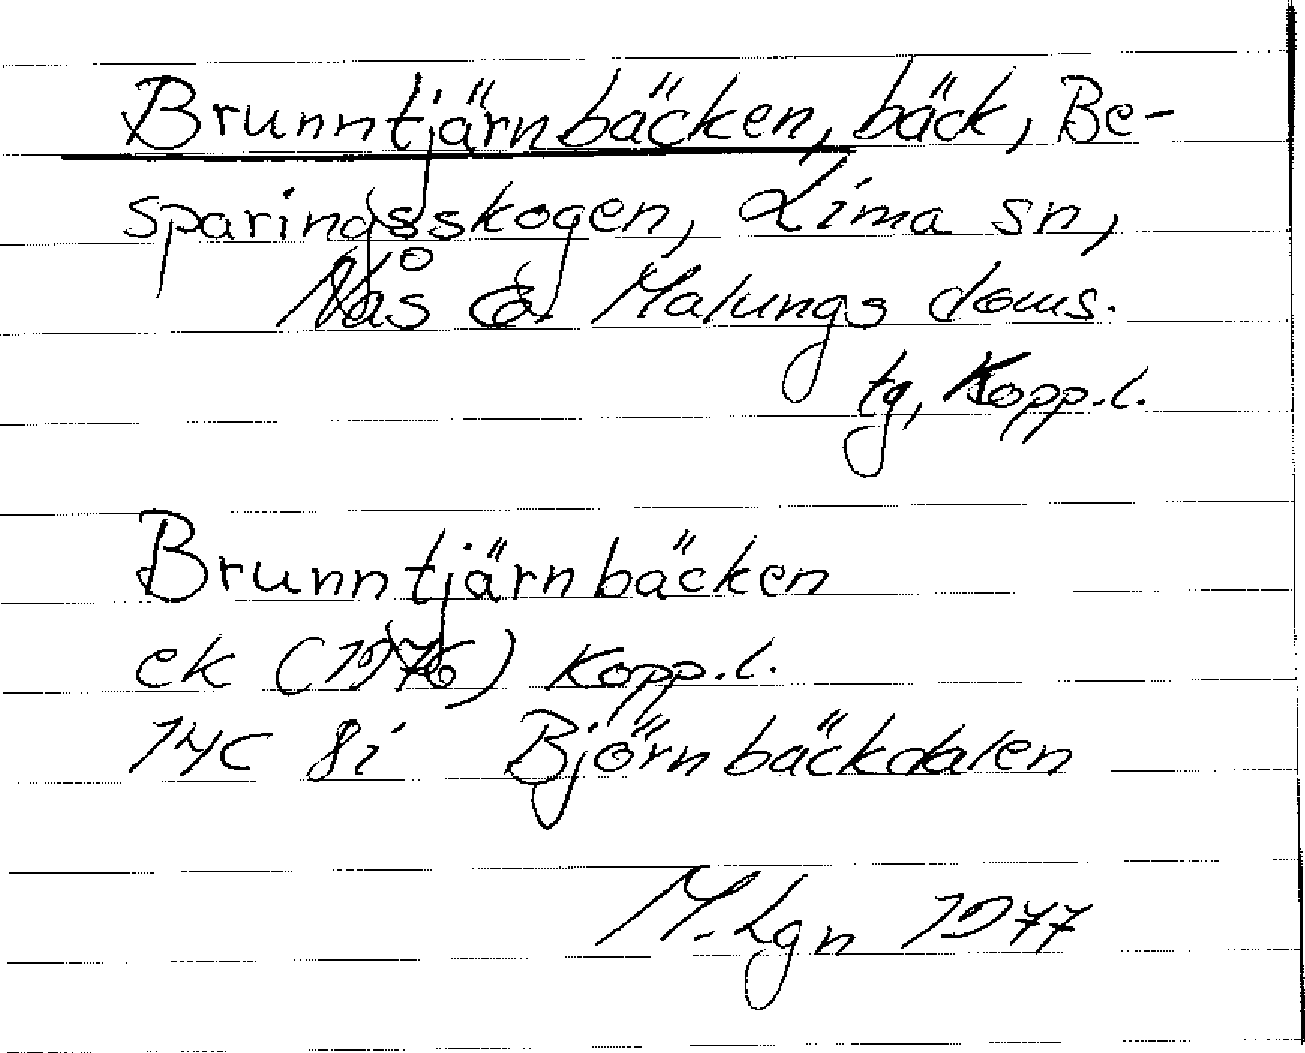 Brunntjärnbäcken, bäck, Be-
sparingsskogen, Lima sn,
Nås o. Malungs doms.
tg, Kopp.l.
Brunntjärnbäcken
ek (1976) Kopp.l.
14C 8i Björnbäckdalen
M. Lgn 1977